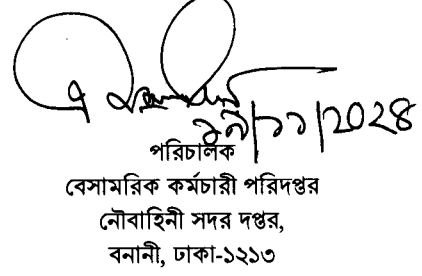 ১৭/১১/২০২৪
পরিচালক
বেসামরিক কর্মচারী পরিদপ্তর
নৌবাহিনী সদর দপ্তর,
বনানী, ঢাকা-১২১৩